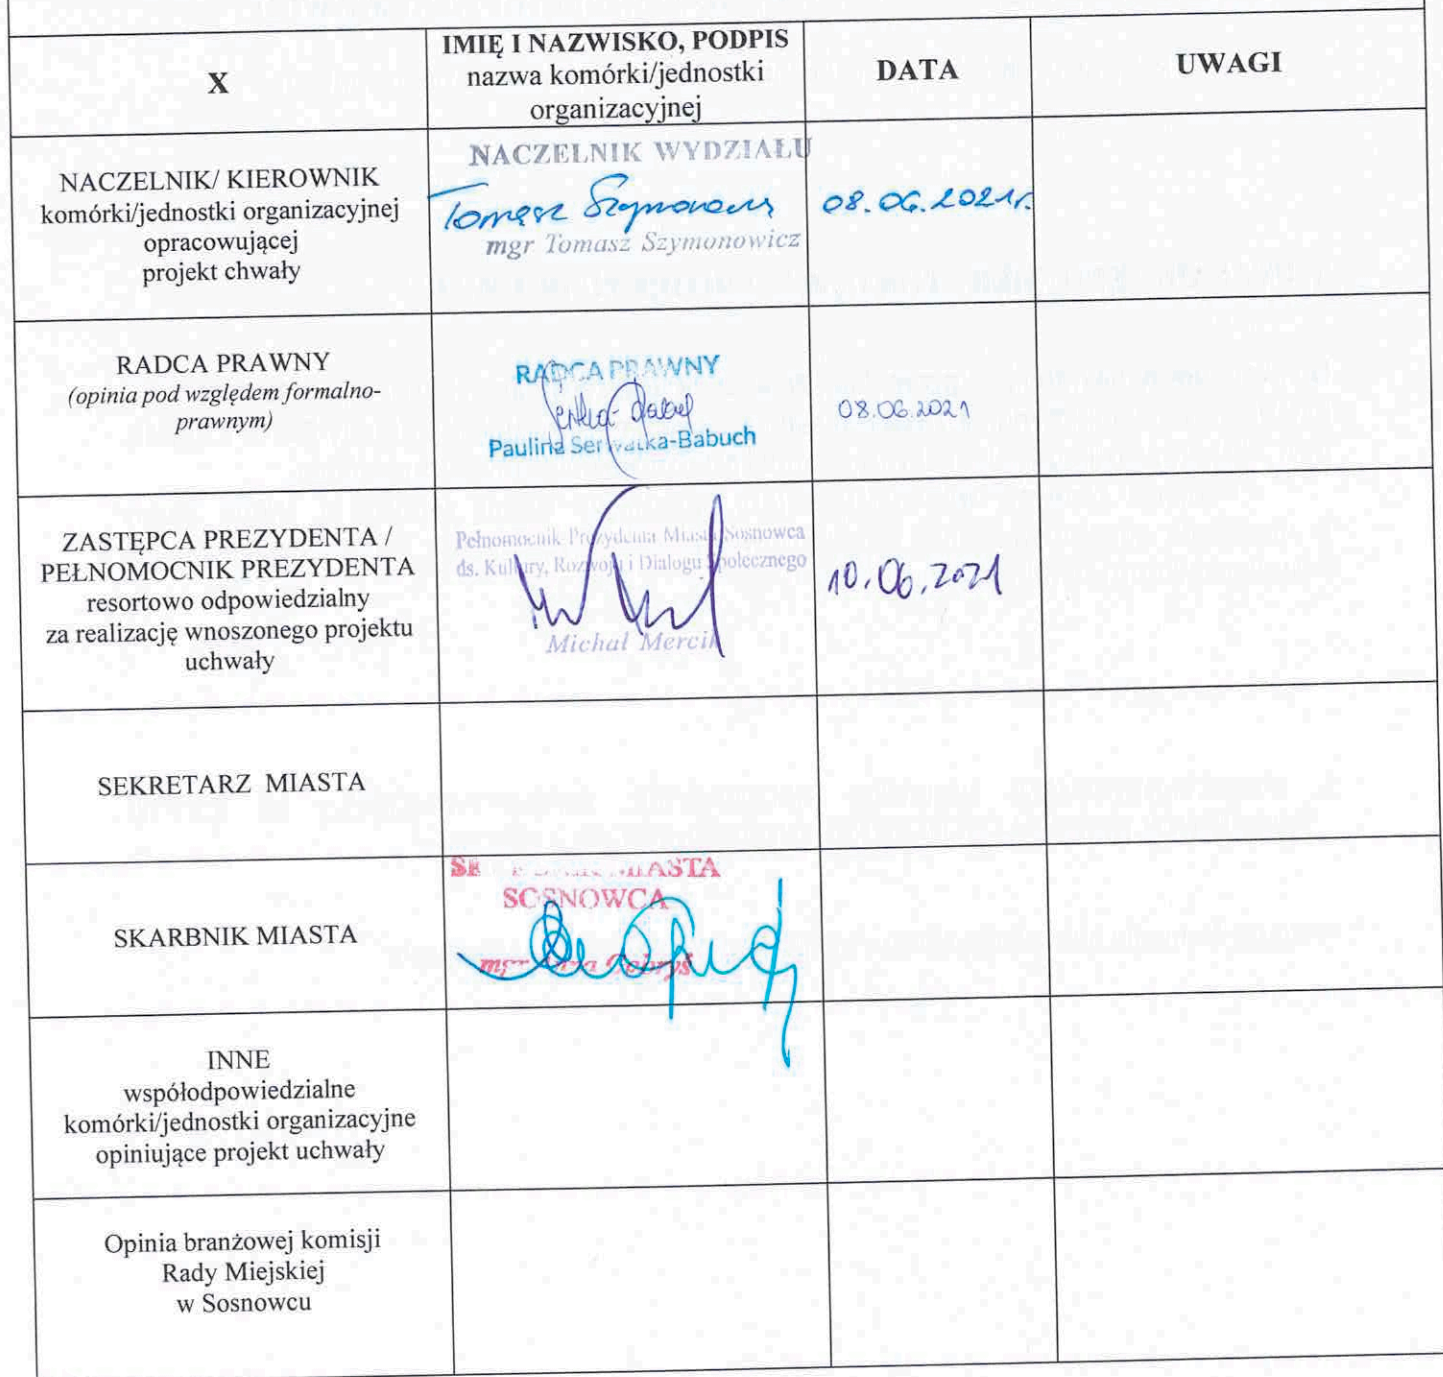 X
IMIĘ I NAZWISKO, PODPIS
nazwa komórki/jednostki
organizacyjnej
DATA
UWAGI
NACZELNIK/ KIEROWNIK
komórki/jednostki organizacyjnej
opracowującej
projekt chwały
NACZELNIK WYDZIAŁU
Tomasz Szymonowicz
mgr Tomasz Szymonowicz
08.06.2021r.
RADCA PRAWNY
(opinia pod względem formalno-
prawnym)
RADCA PRAWNY
Paulina Serwatka-Babuch
08.06.2021
ZASTĘPCA PREZYDENTA /
PEŁNOMOCNIK PREZYDENTA
resortowo odpowiedzialny
za realizację wnoszonego projektu
uchwały
Pełnomocnik Prezydenta Miasta Sosnowca
ds. Kultury, Rozwoju i Dialogu Społecznego
Michał Mercik
10.06.2021
SEKRETARZ MIASTA
SKARBNIK MIASTA
MIASTA
SOSNOWCA
mgr
INNE
współodpowiedzialne
komórki/jednostki organizacyjne
opiniujące projekt uchwały
Opinia branżowej komisji
Rady Miejskiej
w Sosnowcu